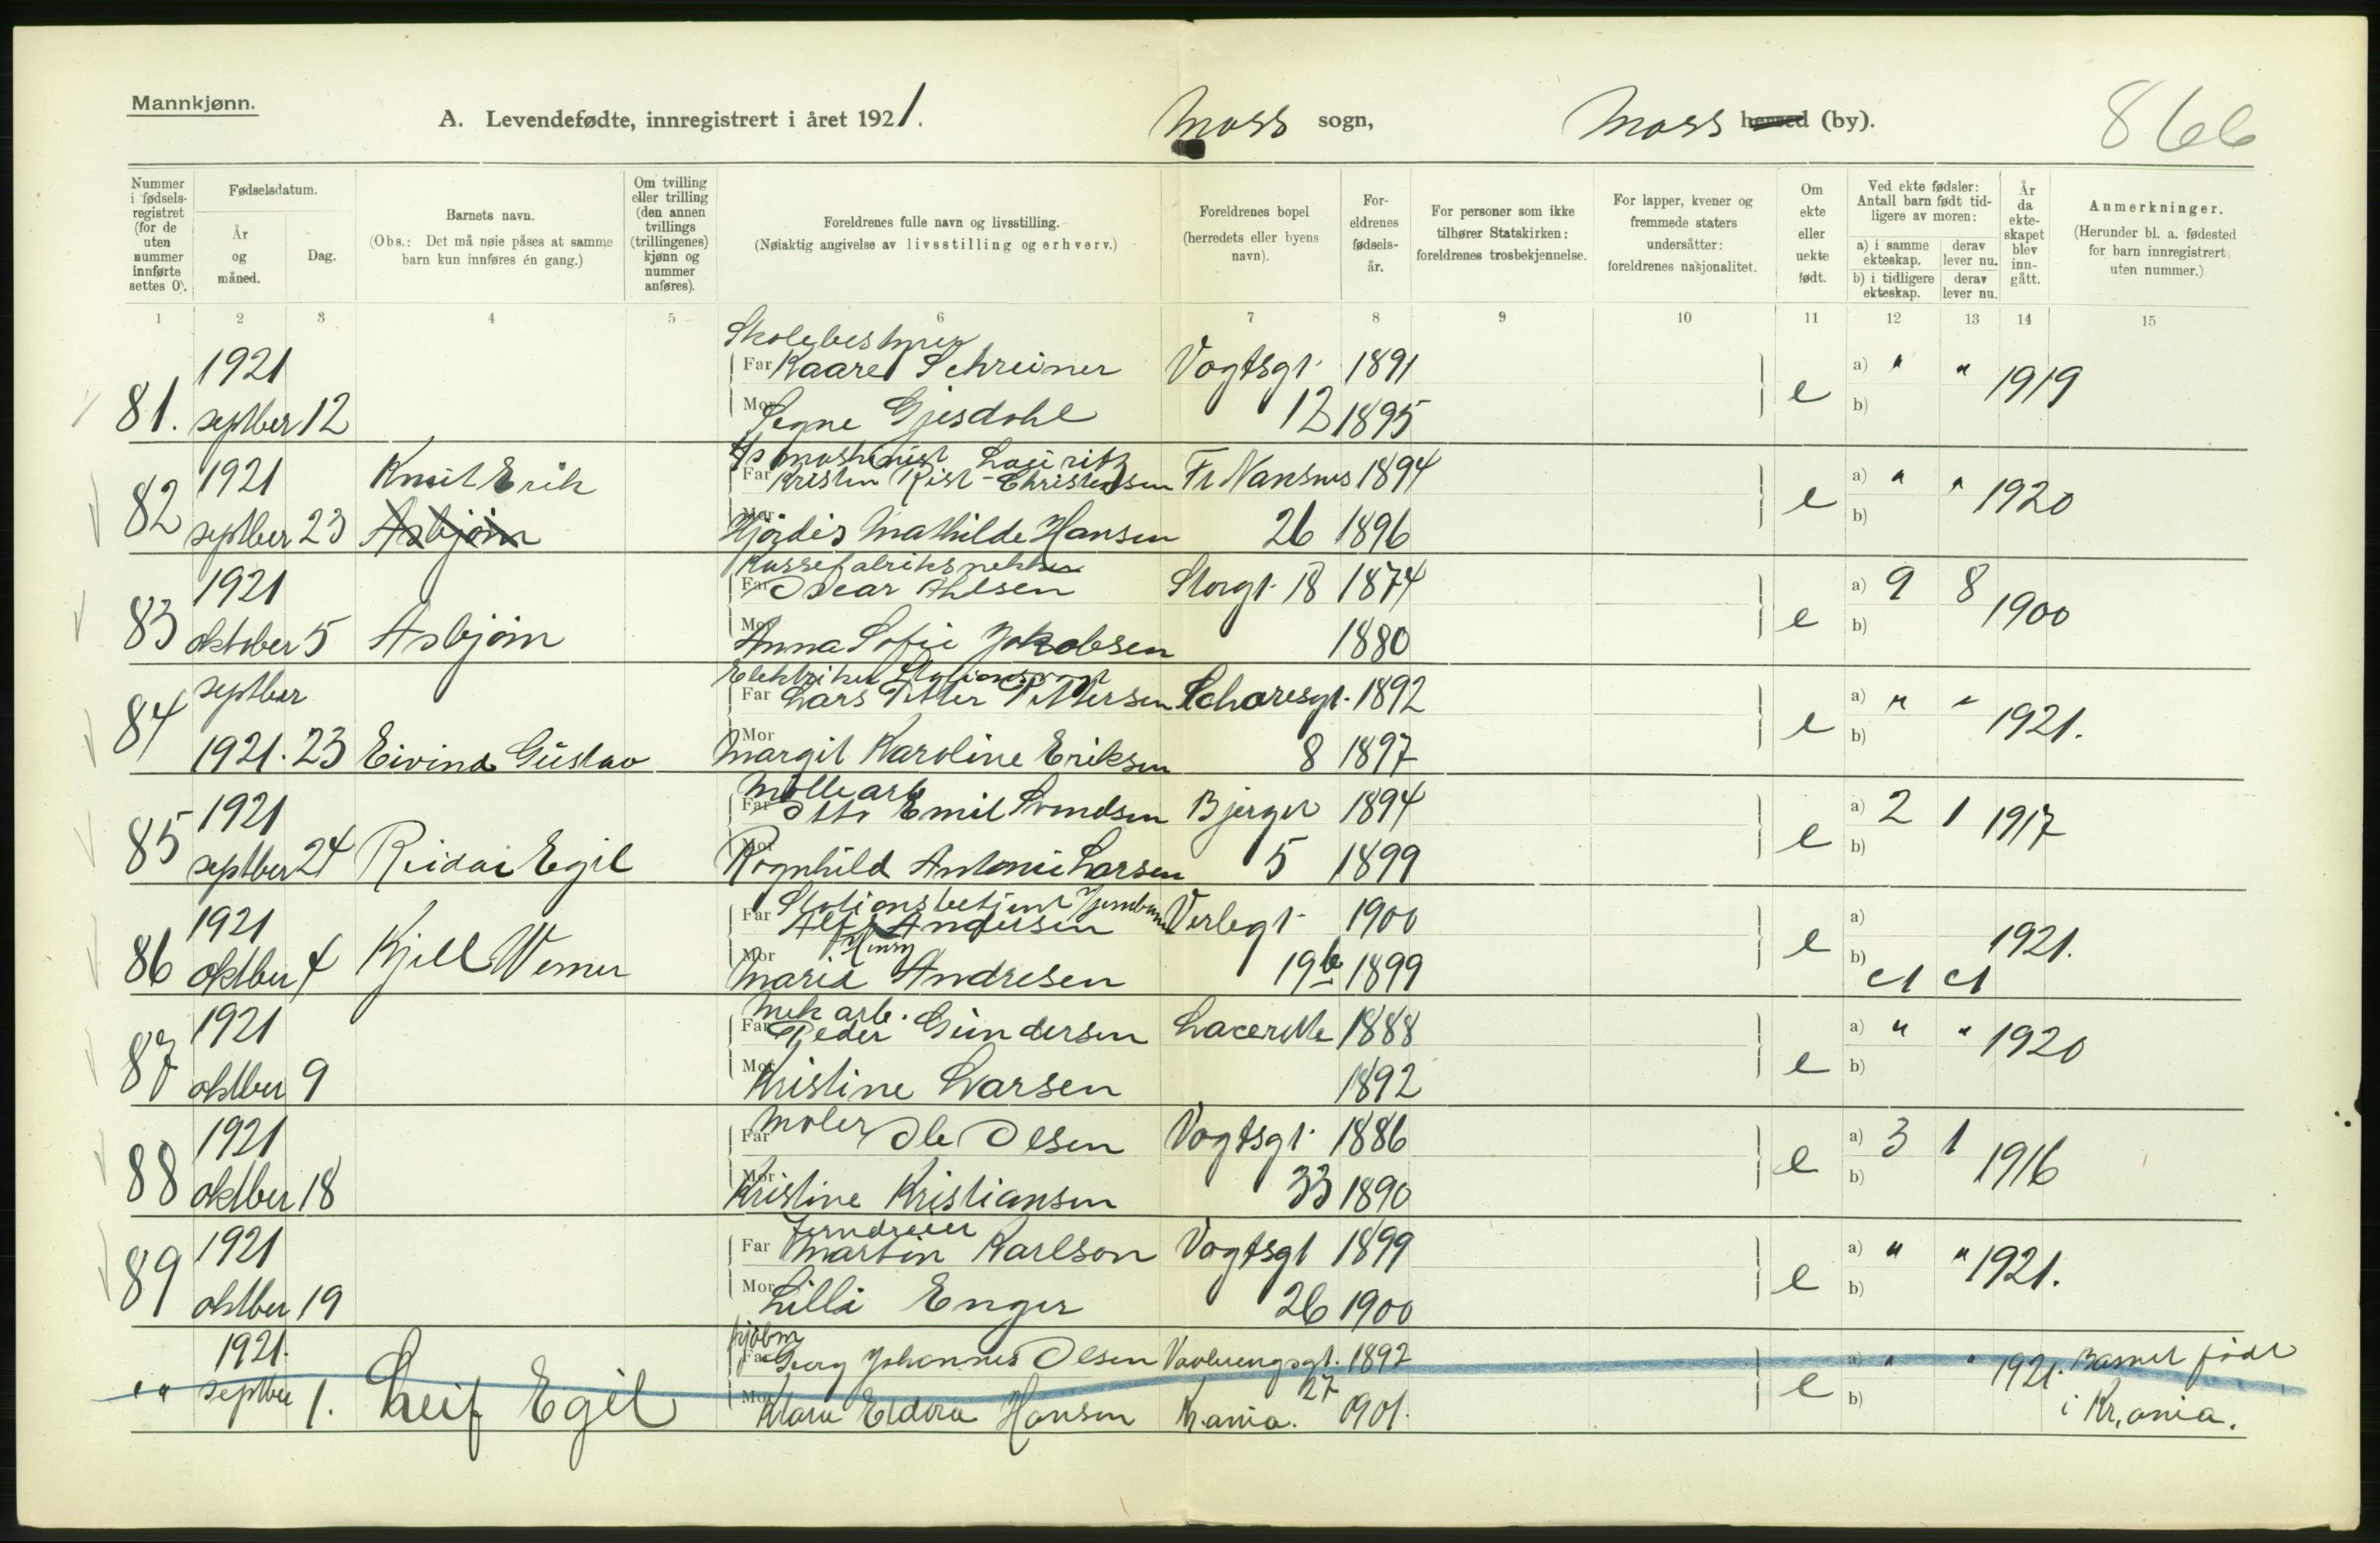 Mannkjønn.
A. Levendefødte, innregistrert i året 1921.
Moss sogn,
Moss herred (by).
866
Nummer i fødselsregistret (for de uten nummer innførte settes 0).
Fødselsdatum.
År og måned.
Dag.
Barnets navn.
(Obs.: Det må nøie påses at samme barn kun innføres én gang.)
Om tvilling eller trilling (den annen tvillings (trillingenes) kjønn og nummer anføres).
Foreldrenes fulle navn og livsstilling.
(Nøiaktig angivelse av livsstilling og erhverv.)
Foreldrenes bopel (herredets eller byens navn).
Foreldrenes fødselsår.
For personer som ikke tilhører Statskirken: foreldrenes trosbekjennelse.
For lapper, kvener og fremmede staters undersåtter: foreldrenes nasjonalitet.
Om ekte eller uekte født.
Ved ekte fødsler: Antall barn født tidligere av moren:
a) i samme ekteskap.
derav lever nu.
b) i tidligere ekteskap.
derav lever nu.
År da ekteskapet blev inngått.
Anmerkninger.
(Herunder bl. a. fødested for barn innregistrert uten nummer.)
1 2 3 4 5 6 7 8 9 10 11 12 13 14 15
Skolebestyrer
1921 Far Kaare Schreiner Vogtsgt. 1891 a) " " 1919
81. septber 12 Mor Signe Gjesdahl 12 1895 e b)
maskinist Lauritz
1921 Knut Erik Far Kristen Rist-Christensen Fr Nansens 1894 a) " " 1920
82 septber 23 Asbjørn Mor Hjørdis Mathilde Hansen 26 1896 e b)
1921 Far Oscar Ahlsen Storgt. 13 1874 a) 9 8 1900
83 oktober 5 Asbjørn Mor Anna Sofie Jakobsen 1880 e b)
Elektriker
septber Far Lars Petter Pettersen 1892 a) " " 1921.
84 1921. 23 Eivind Gustav Mor Margit Karoline Eriksen 8 1897 e b)
Møllearb
1921 Far Otto Emil Svendsen Bjerget 1894 a) 2 1 1917
85 septber 24 Reidar Egil Mor Ragnhild Antonie Larsen 5 1899 e b)
Stationsbetjent Jernbanen
1921 Far Alf Andersen Verlegt. 1900 a) 1921.
Henry
86 oktber 4 Kjell Werner Mor Marie Andresen 19b 1899 e b) c1 c1
Mek arb.
1921 Far Peder Gundersen 1888 a) " " 1920
87 oktber 9 Mor Kristine Larsen 1892 e b)
1921 Far Maler Ole Olsen Vogtsgt. 1886 a) 3 1 1916
88 oktber 18 Mor Kristine Kristiansen 33 1890 e b)
Jerndreier
1921 Far Martin Karlson Vogtsgt 1899 a) " " 1921.
89 oktber 19 Mor Lilli Enger 26 1900 e b)
sjøbm
1921. Far Georg Johannes Olsen Vaalerengsgt. 1892 a) " " 1921. Barnet født
"" septber 1. Leif Egil Mor Klara Eldora Hansen 27 Kr.ania. 1901. e b) i Kr.ania.